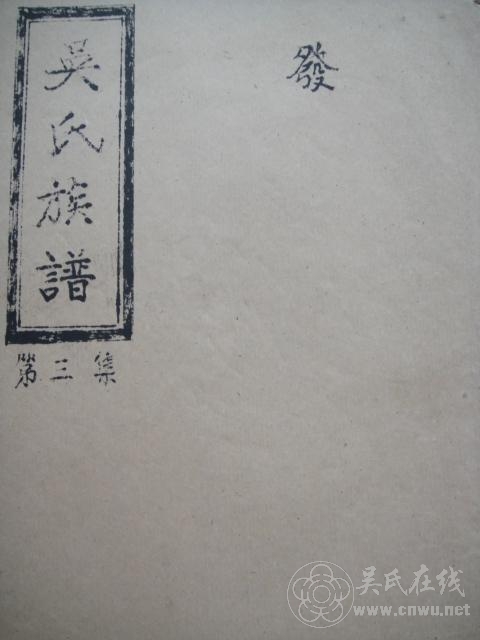 吳氏族譜
第三集
發
吴氏在线
www.cnwu.net